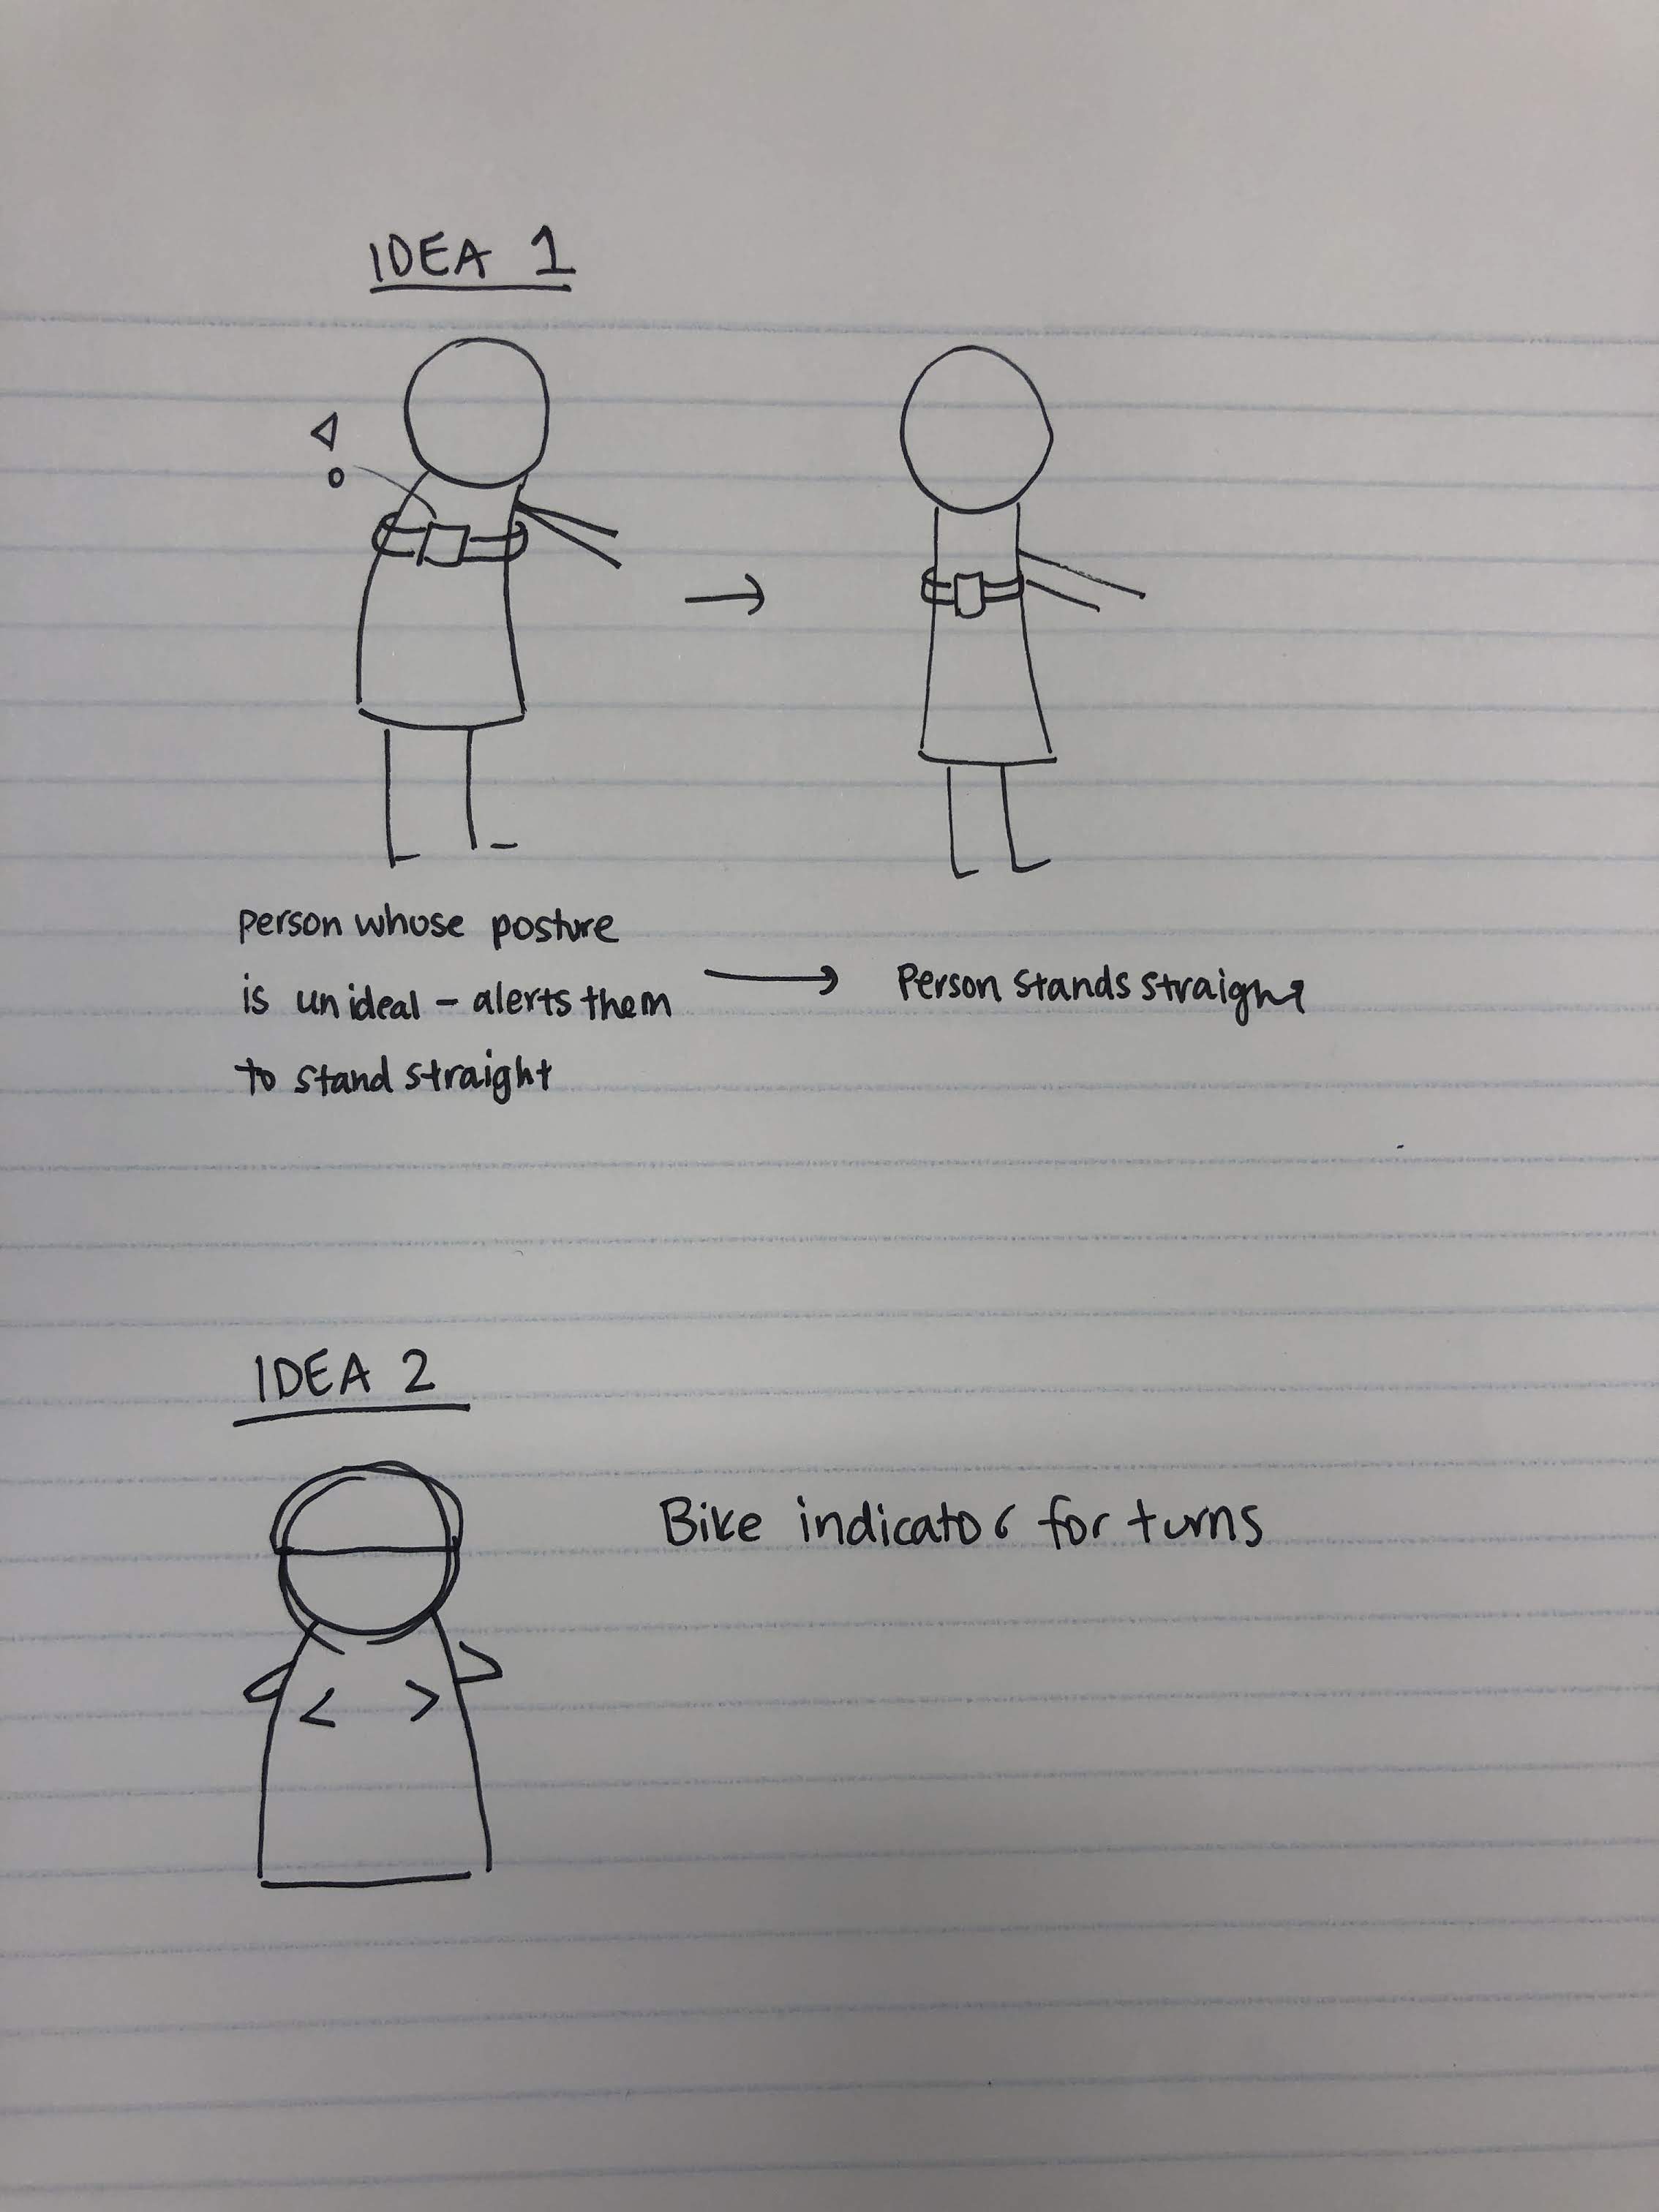 IDEA 1
person whose posture
is unideal - alerts them
to stand straight
Person stands straight
IDEA 2
Bike indicator for turns
< >